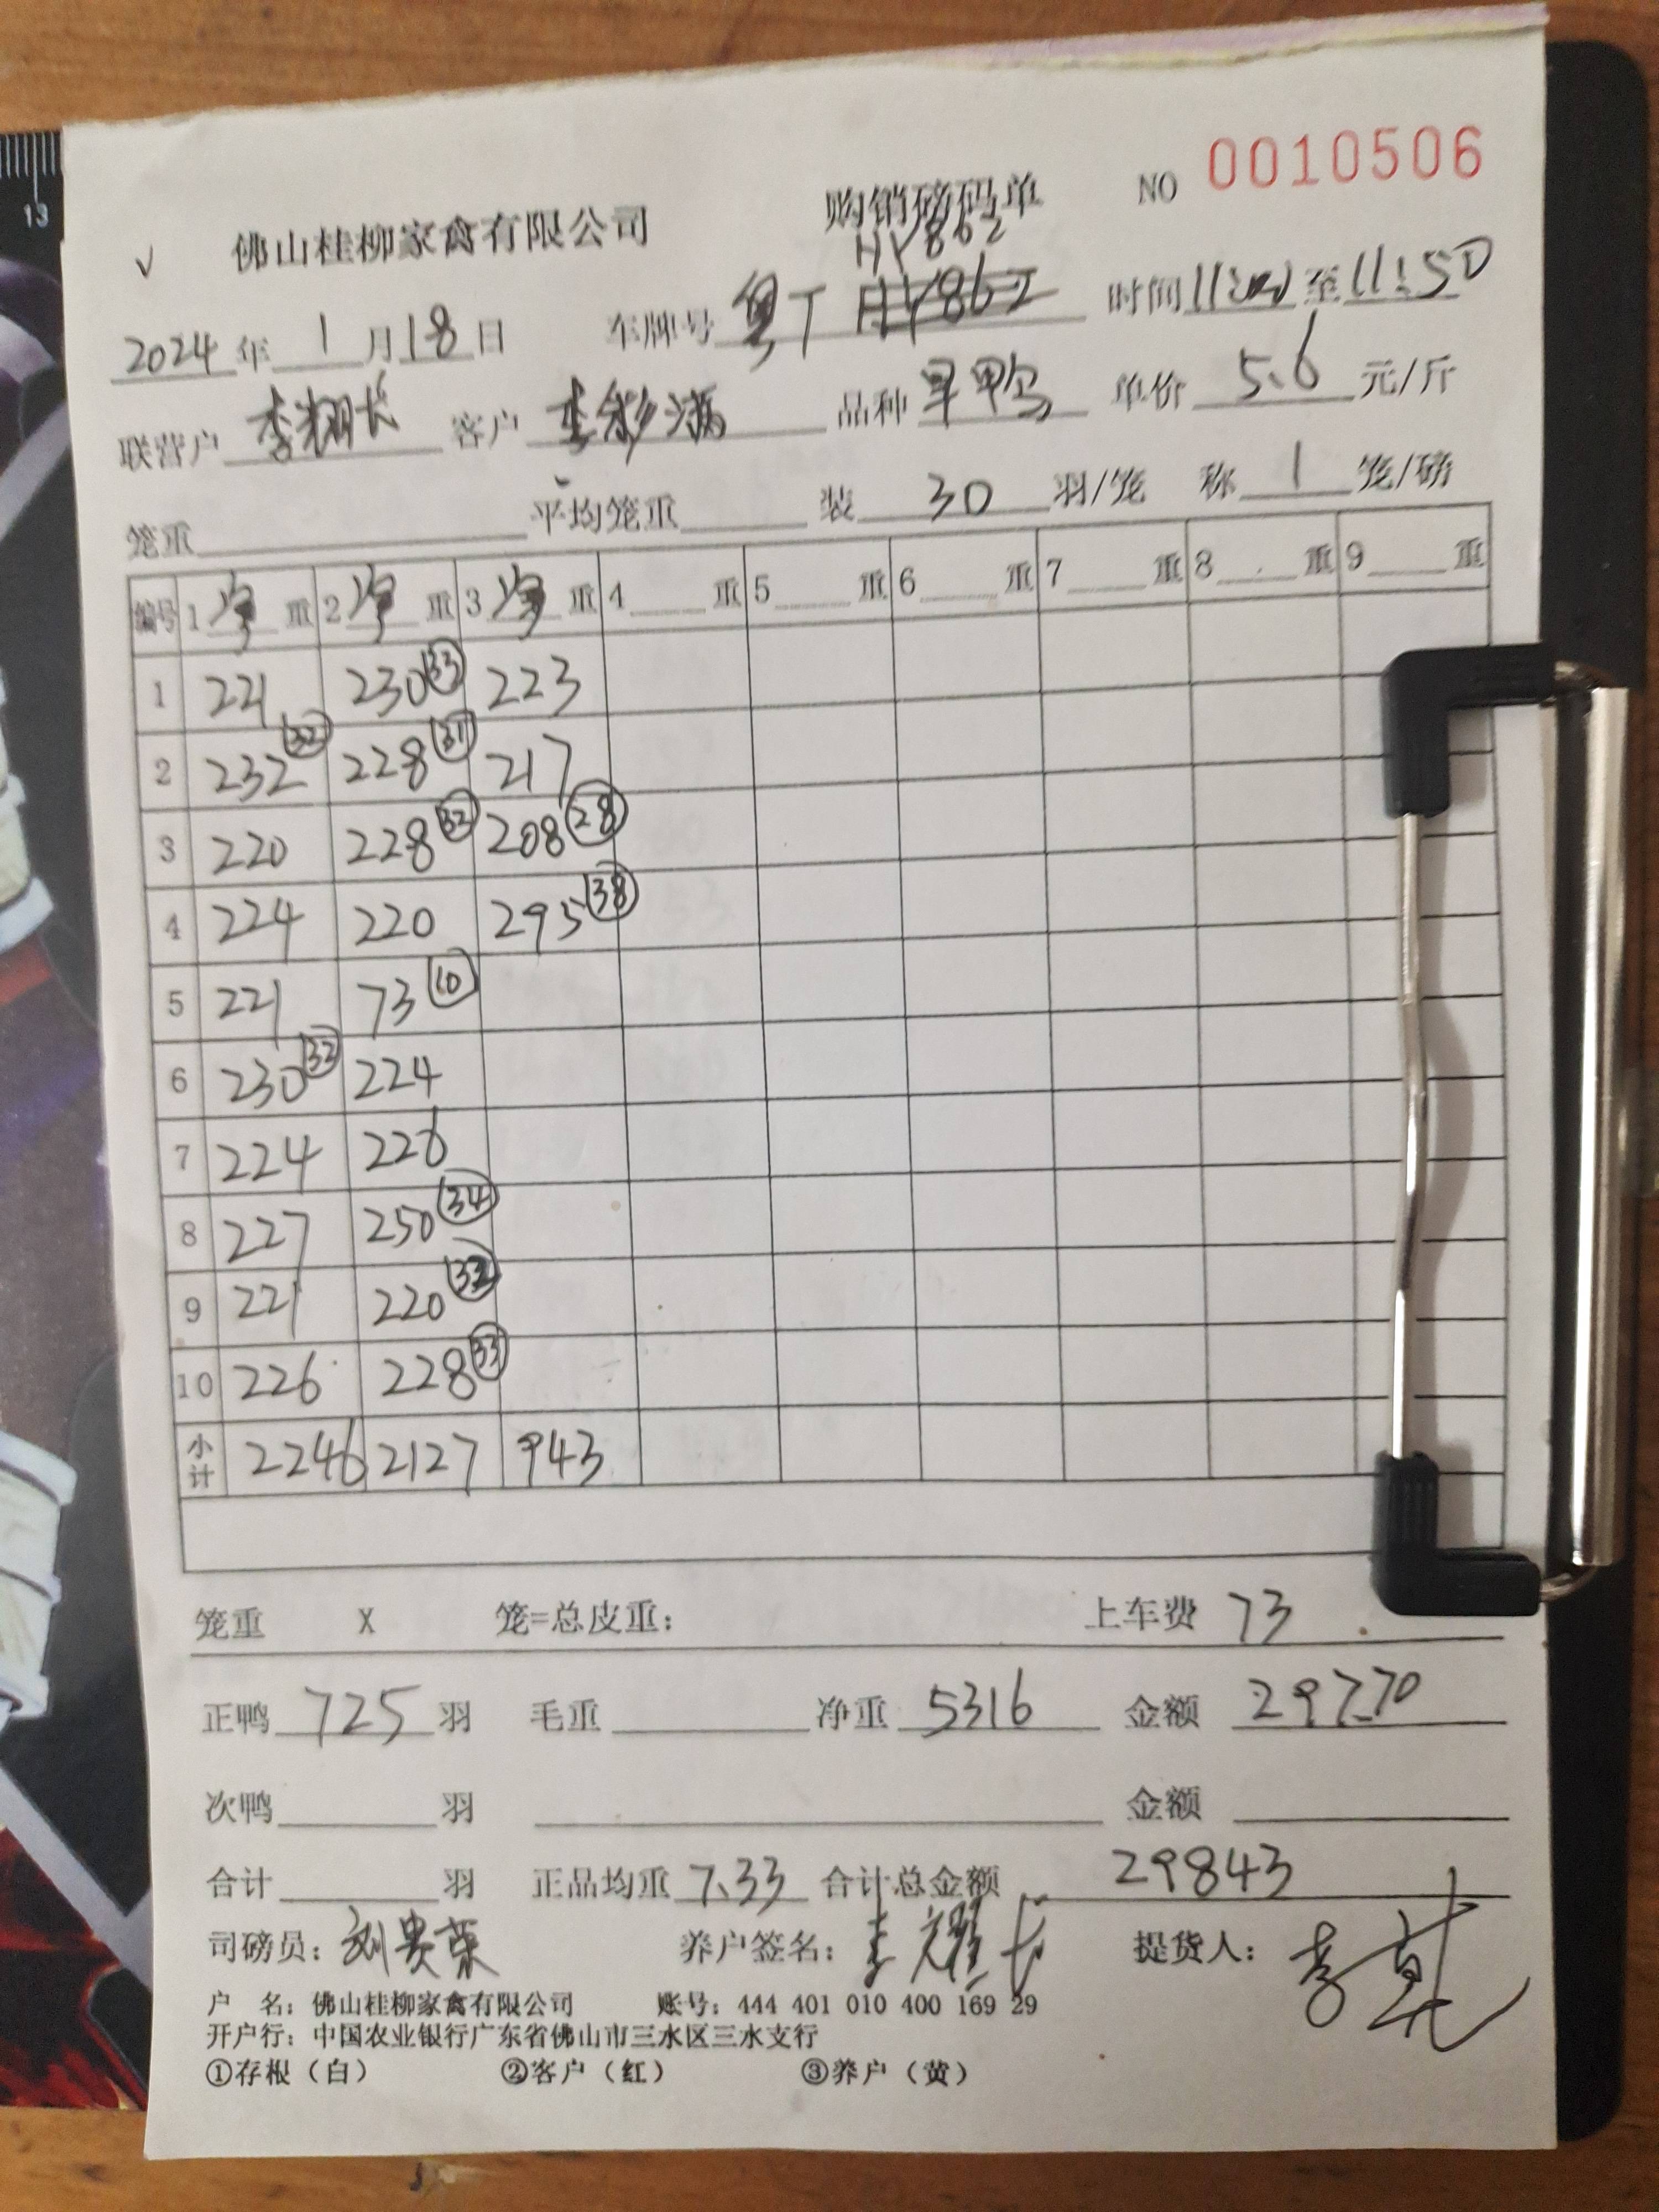 13
NO 0010506
√ 佛山桂柳家禽有限公司 购销磅码单
HY862
2024 年 1 月 18 日 车牌号 粤T HY862 时间 11:00 至 11:50
联营户 李翔长 客户 李彩满 品种 旱鸭 单价 5.6 元/斤
笼重 平均笼重 装 30 羽/笼 称 1 笼/磅
编号 1 净 重 2 净 重 3 净 重 4 重 5 重 6 重 7 重 8 重 9 重
1 221 230 33 223
2 232 32 228 31 217
3 220 228 32 208 28
4 224 220 295 38
5 221 73 10
6 230 32 224
7 224 226
8 227 250 34
9 221 220 32
10 226 228 33
小计 2246 2127 943
笼重 X 笼=总皮重: 上车费 73
正鸭 725 羽 毛重 净重 5316 金额 29770
次鸭 羽 金额
合计 羽 正品均重 7.33 合计总金额 29843
司磅员: 刘贵荣 养户签名: 李耀长 提货人:
户 名: 佛山桂柳家禽有限公司 账号: 444 401 010 400 169 29
开户行: 中国农业银行广东省佛山市三水区三水支行
①存根（白） ②客户（红） ③养户（黄）